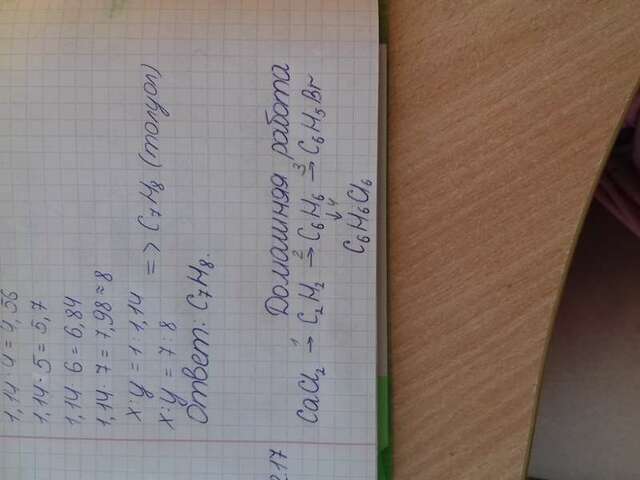 1,14 · 4 = 4,56
1,14 · 5 = 5,7
1,14 · 6 = 6,84
1,14 · 7 = 7,98 ≈ 8
x : y = 1 : 1,14
x : y = 7 : 8
=> C₇H₈ (толуол)
Ответ: C₇H₈.
Домашняя работа
CaCl₂ →¹ C₂H₂ →² C₆H₆ →³ C₆H₅Br
↓ 4
C₆H₆Cl₆